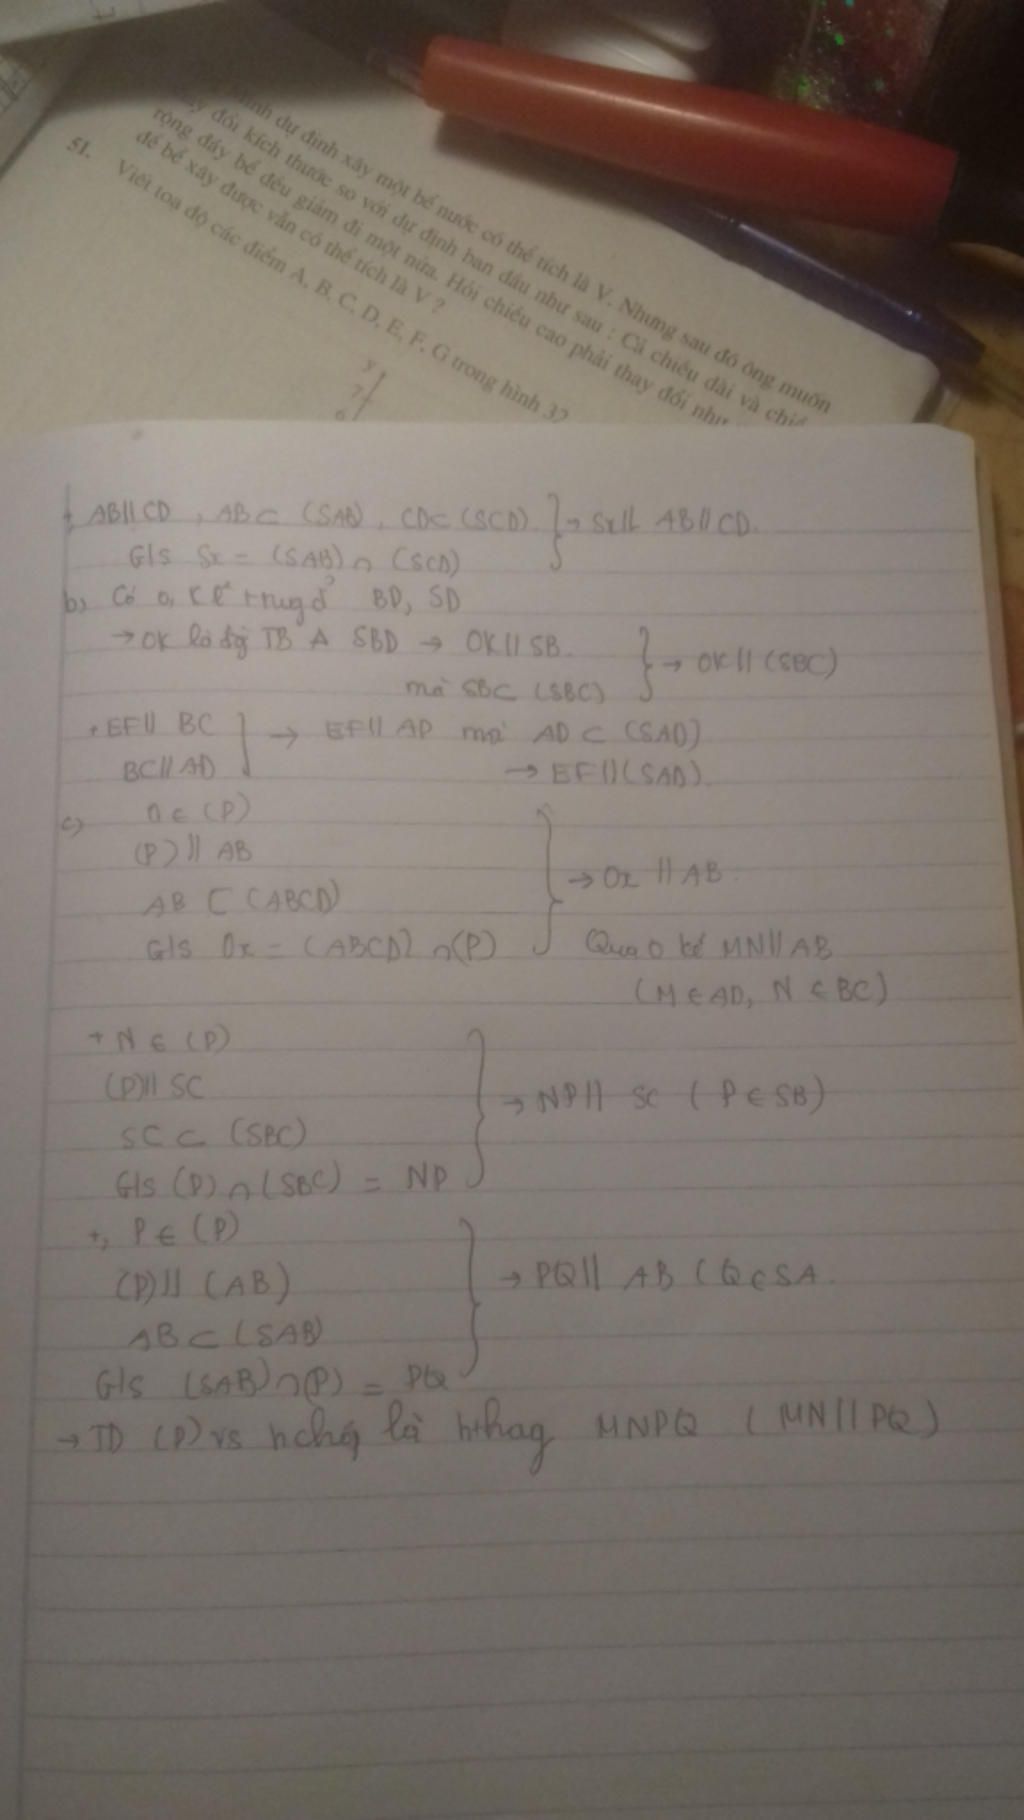 Minh dự định xây một bể nước có thể tích là V. Nhưng sau đó ông muốn
đổi kích thước so với dự định ban đầu như sau : Cả chiều dài và chiề
rộng đáy bể đều giảm đi một nửa. Hỏi chiều cao phải thay đổi như
để bể xây được vẫn có thể tích là V ?
51. Viết toạ độ các điểm A, B, C, D, E, F, G trong hình 32
y
7
6
+, AB//CD , AB ⊂ (SAB), CD ⊂ (SCD) } → Sx// AB//CD.
G/s Sx = (SAB) ∩ (SCD)
b, Có O, K là trung đ' BD, SD
→ OK là đg TB Δ SBD → OK // SB. } → OK // (SBC)
mà SB ⊂ (SBC)
+ EF// BC } → EF// AD mà AD ⊂ (SAD)
BC//AD → EF//(SAD).
c) O ∈ (P)
(P) // AB
AB ⊂ (ABCD) } → Ox // AB.
G/s Ox = (ABCD) ∩ (P) Qua O kẻ MN // AB
(M ∈ AD, N ∈ BC)
+ N ∈ (P)
(P)// SC } → NP// SC ( P ∈ SB)
SC ⊂ (SBC)
G/s (P) ∩ (SBC) = NP
+, P ∈ (P)
(P)// (AB) } → PQ// AB ( Q ∈ SA.
AB ⊂ (SAB)
G/s (SAB) ∩ (P) = PQ
→ TD (P) vs hchóp là hthag MNPQ ( MN // PQ )